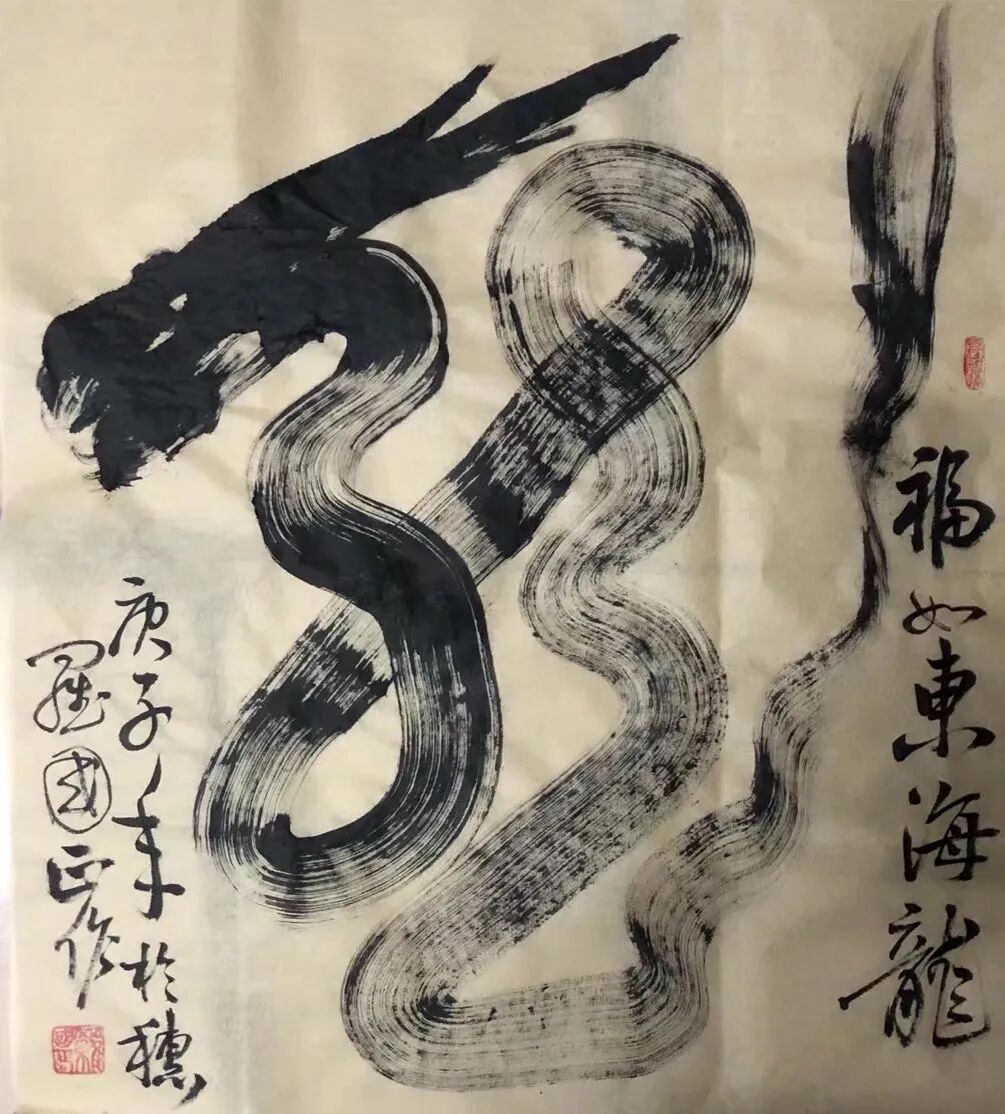 福如東海龍
庚子年於穗
羅國正作